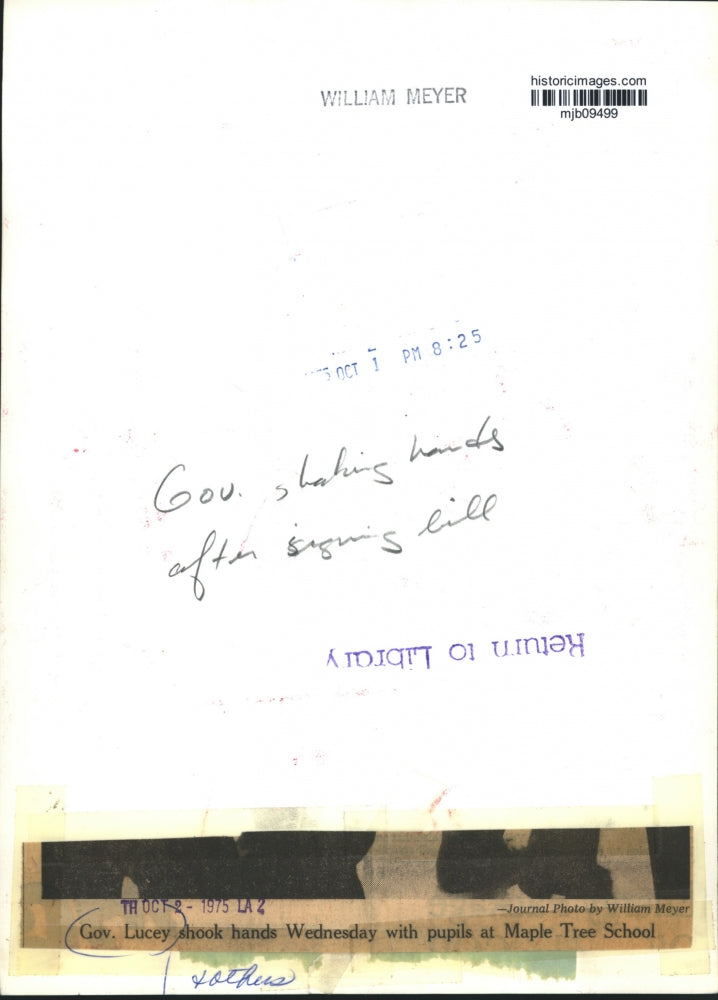 WILLIAM MEYER
historicimages.com
mjb09499
5 OCT 1 PM 8:25
Gov. shaking hands
after signing bill
Return to Library
TH OCT 2 - 1975 LA 2
—Journal Photo by William Meyer
Gov. Lucey shook hands Wednesday with pupils at Maple Tree School
+others